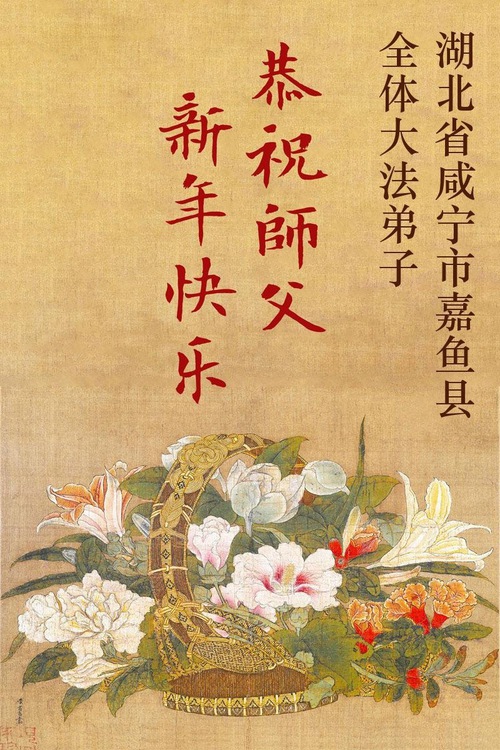 湖北省咸宁市嘉鱼县
全体大法弟子
恭祝師父
新年快乐